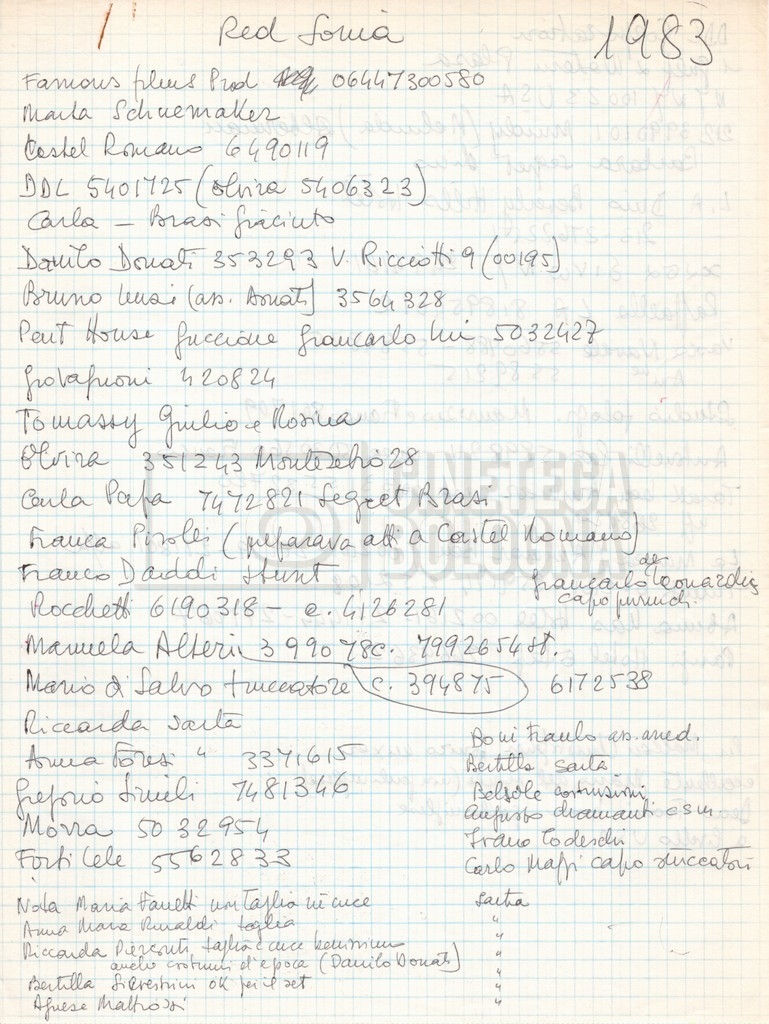 Red Sonia 1983
Famous films Prod 06447300580
Marla Schuemaker
Castel Romano 6490119
DDL 5401725 (Elvira 5406323)
Carla – Brasi Giacinto
Danilo Donati 353293 V. Ricciotti 9 (00195)
Bruno (ass. Donati) 3564328
Pent House Guccione Giancarlo Lui 5032427
420824
Tomassy Giulio e Rosina
Elvira 351243 28
Carla Papa 7472821 Segret Brasi
Franca (preparava atti a Castel Romano)
Franco Daddi Stunt
Giancarlo de Leonardis
capo parrucch.
Rocchetti 6190318 – c. 4126281
Manuela Alteri 399078 c. 7992654 st.
Mario di Salvo truccatore c. 394875 6172538
Riccarda sarta
Anna Foresi " 3371615
Gregorio Simili 7481346
Morra 5032954
Forti Lele 5562833
Boni Franco ass. arred.
Bertilla sarta
Belsole costruzioni
Augusto diamanti csm
Ivano Todeschi
Carlo Maggi capo stuccatori
Nota Maria Fanetti non taglia nè cuce sarta
Anna Maria Rinaldi taglia "
Riccarda Pierconti taglia e cuce benissimo "
anche costumi d'epoca (Danilo Donati) "
Bertilla Silvestrini ok per il set "
Agnese "
CINETECA
BOLOGNA